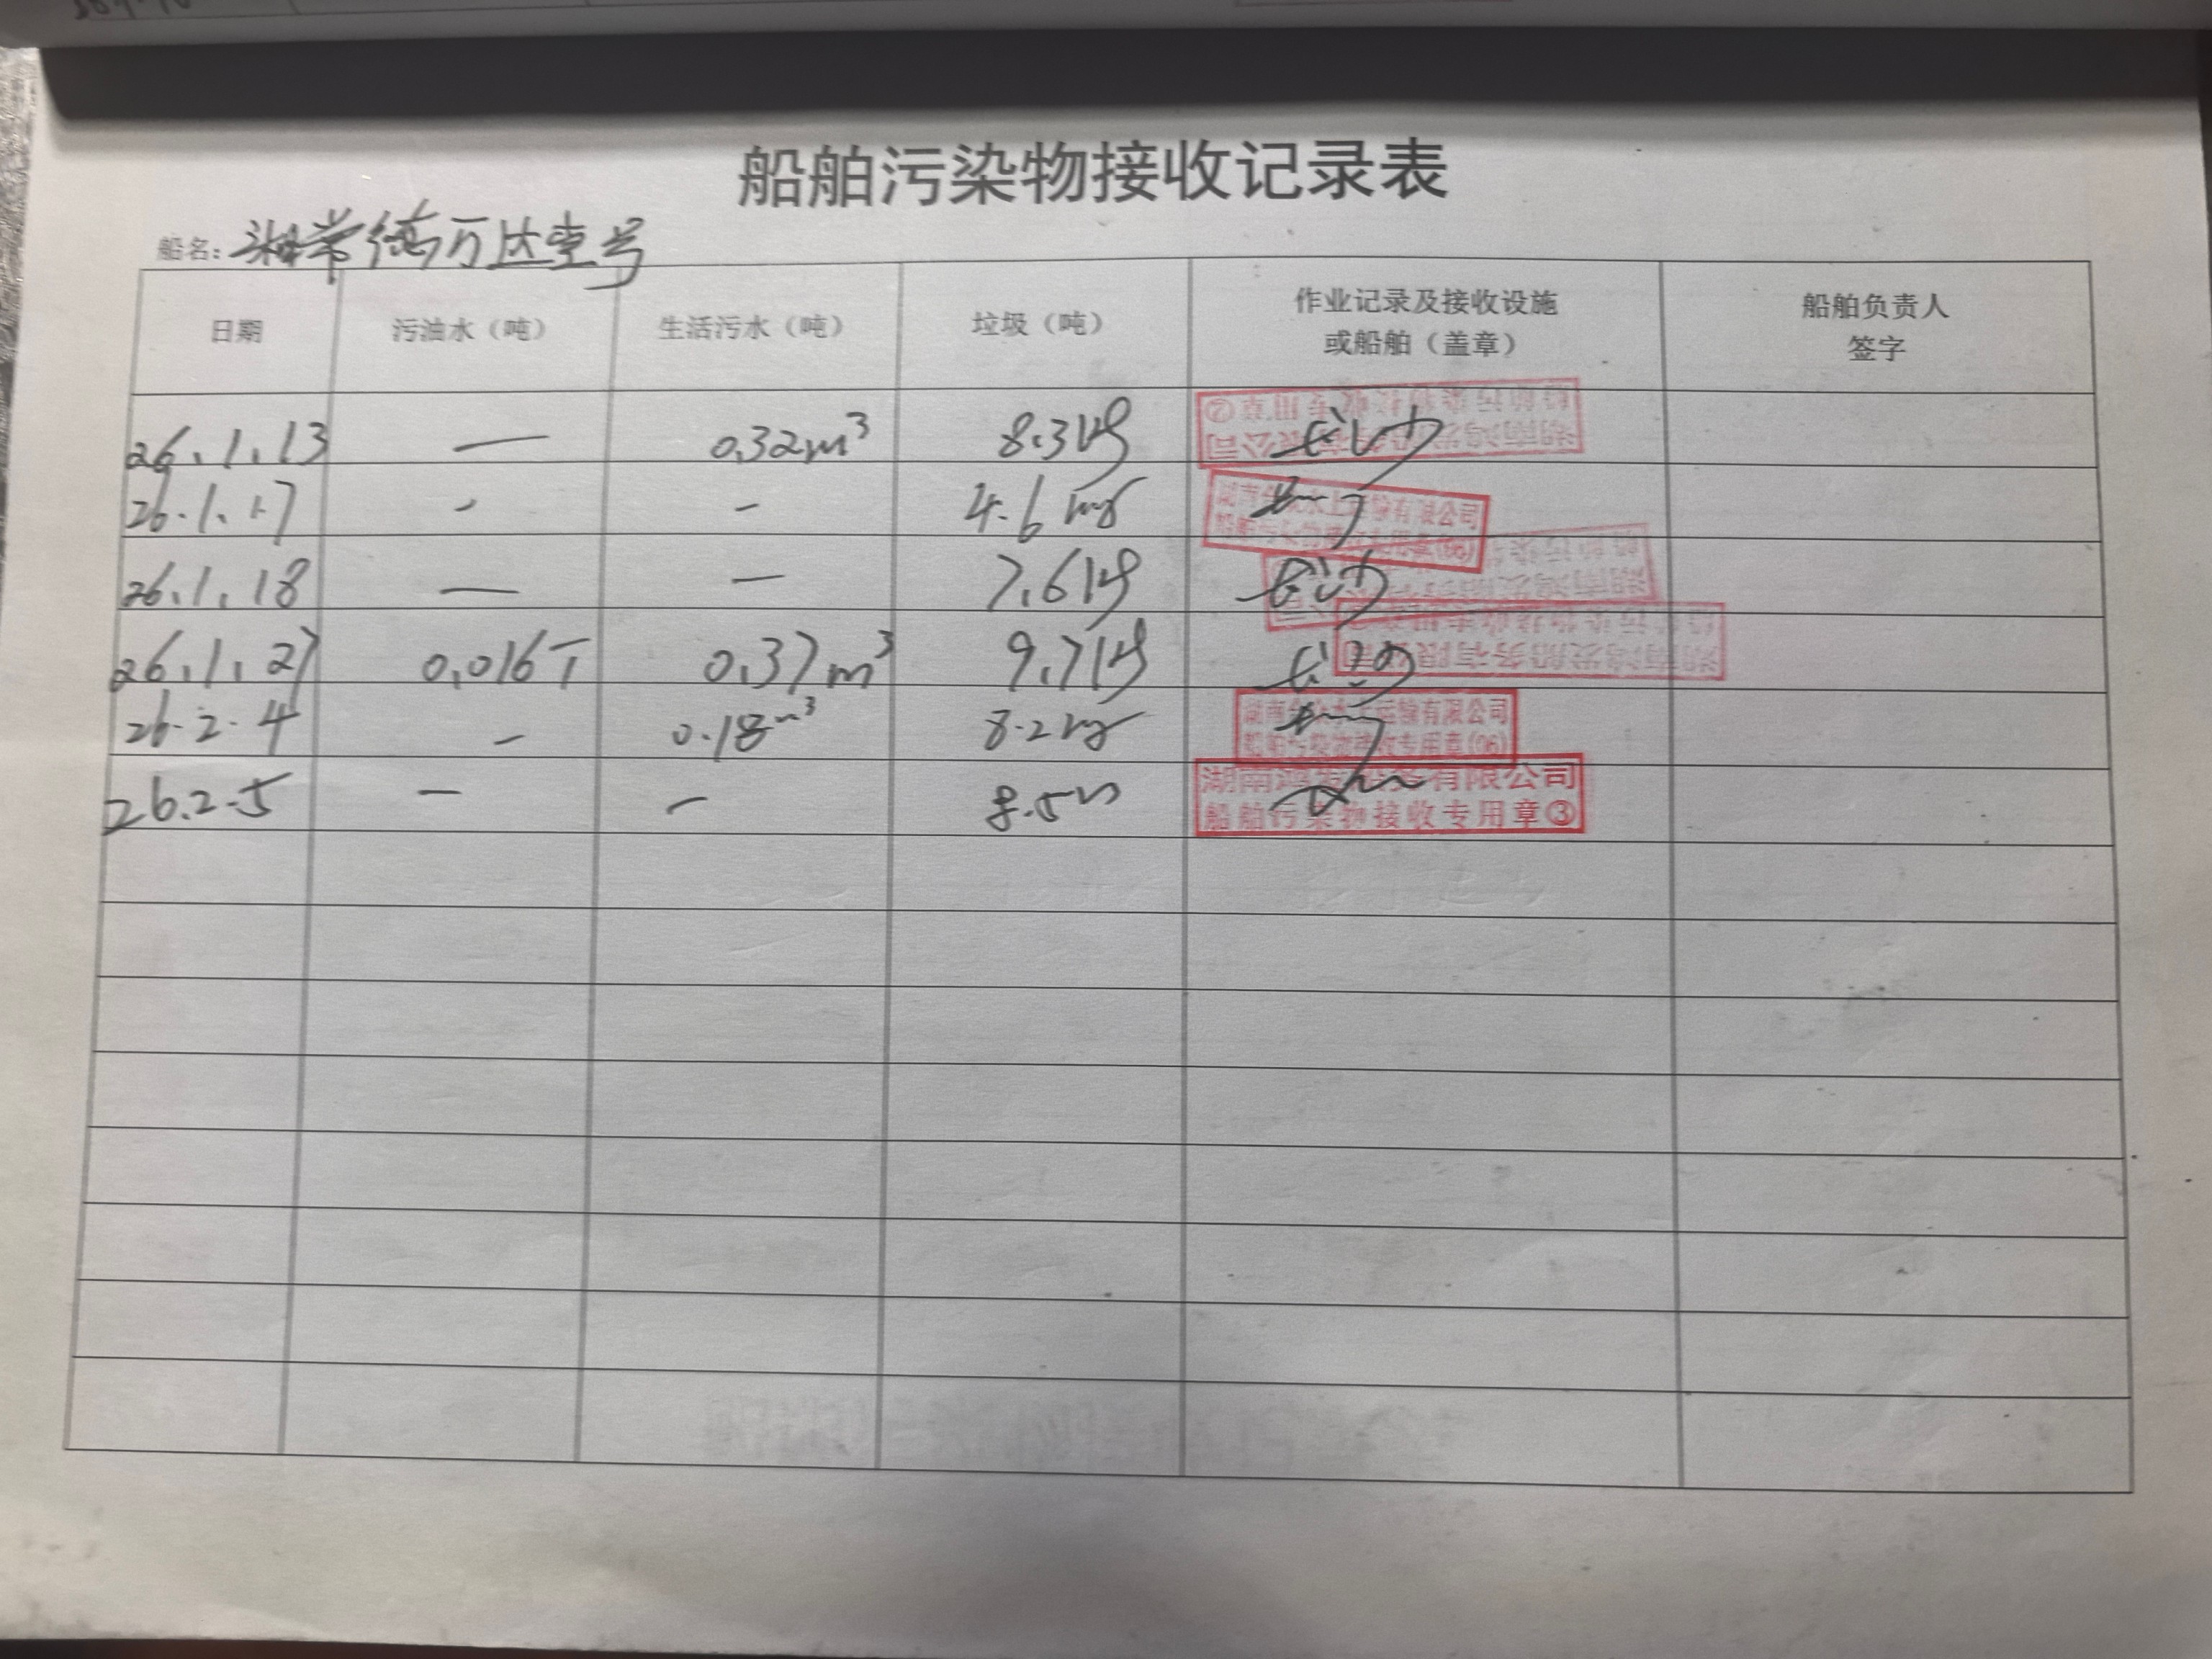 船舶污染物接收记录表
船名：湘常德万达壹号
日期 污油水（吨） 生活污水（吨） 垃圾（吨） 作业记录及接收设施或船舶（盖章） 船舶负责人签字
26.1.13 — 0.32m³ 8.3kg 长沙
26.1.17 - - 4.6kg
26.1.18 — — 7.6kg 长沙
26.1.27 0.016T 0.37m³ 9.7kg 长沙
26.2.4 - 0.18m³ 8.2kg
湖南 水上运输有限公司
船舶污染物接收专用章(06)
26.2.5 - - 8.5
湖南鸿发船务有限公司
船舶污染物接收专用章③